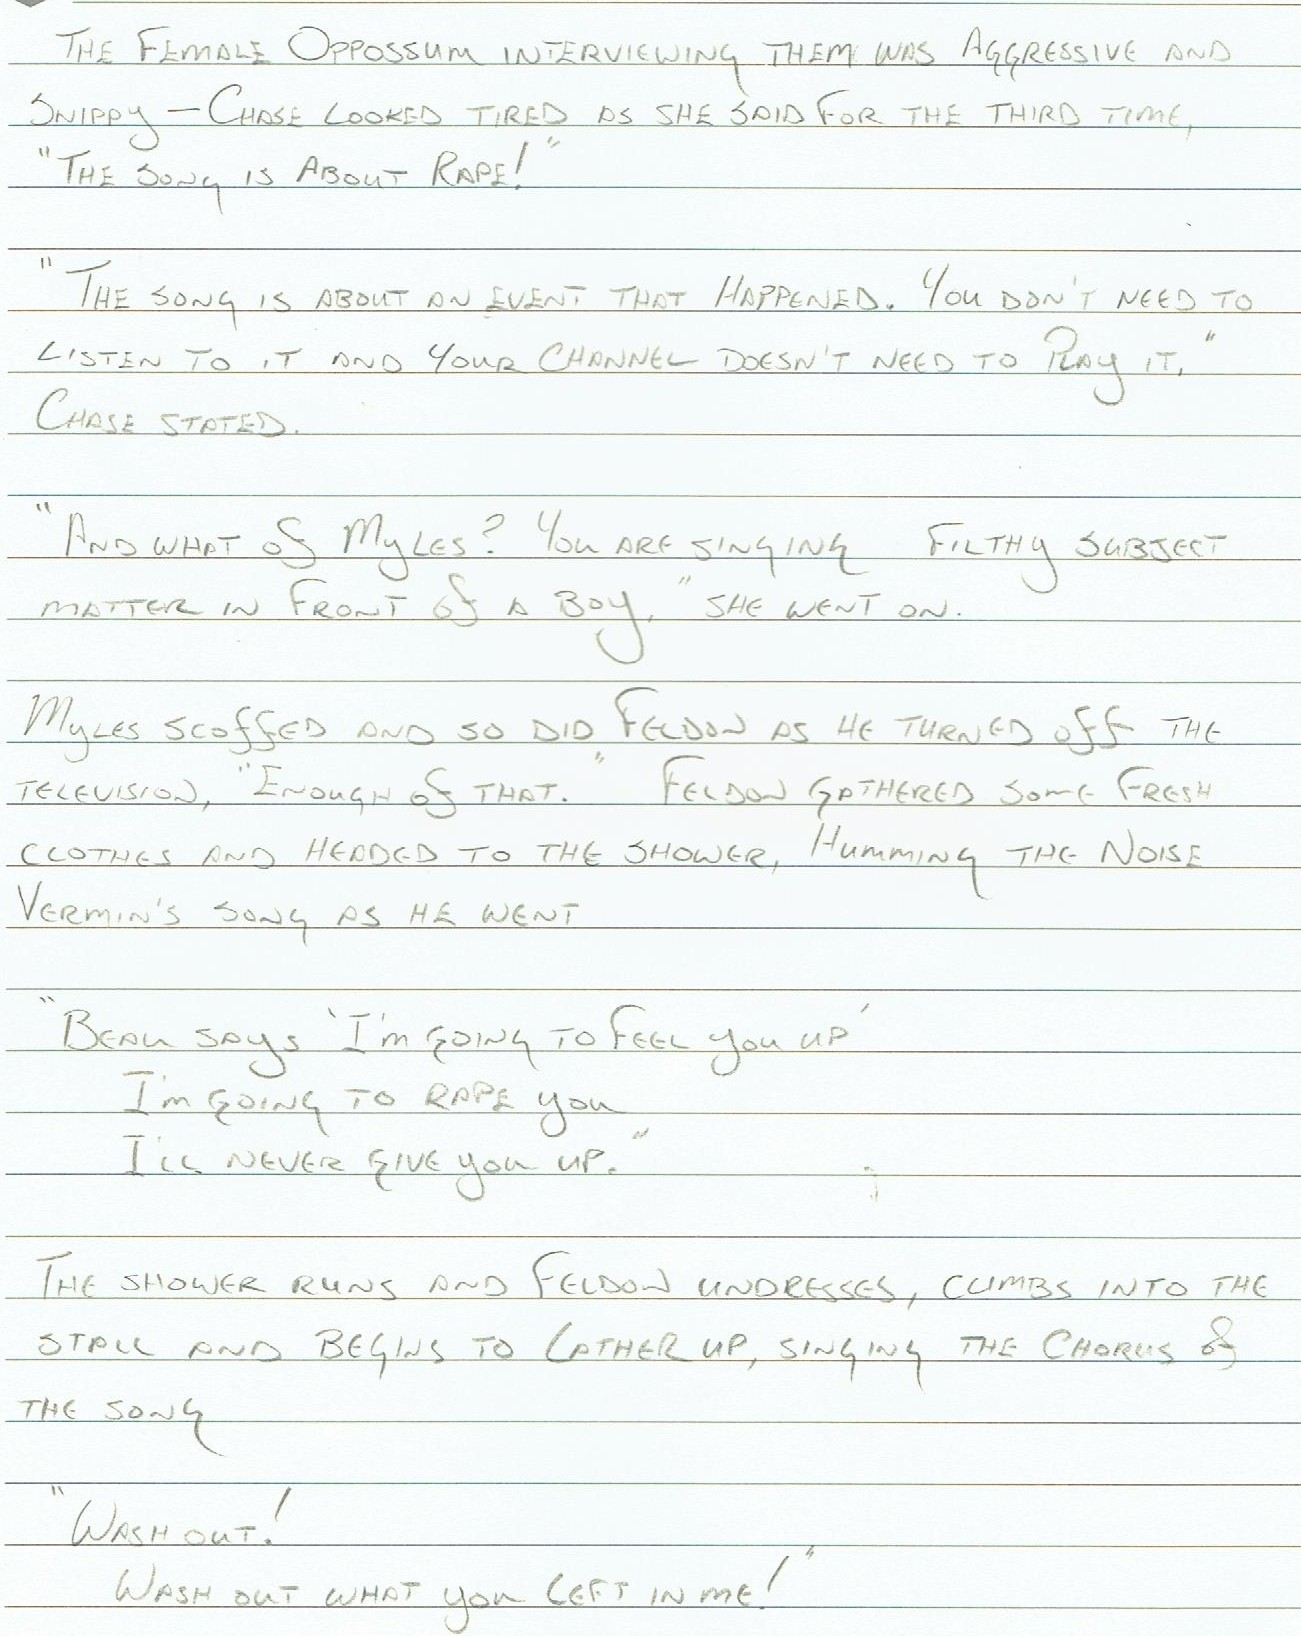 The Female Oppossum interviewing them was Aggressive and
Snippy — Chase looked tired as she said for the third time,
"The song is About Rape!"
"The song is about an event that Happened. You don't need to
listen to it and your Channel doesn't need to Play it,"
Chase stated.
"And what of Myles? You are singing Filthy subject
matter in front of a Boy," she went on.
Myles scoffed and so did Feldon as he turned off the
television, "Enough of that." Feldon gathered some Fresh
clothes and headed to the shower, Humming the Noise
Vermin's song as he went
"Beau says 'I'm going to feel you up'
I'm going to rape you
I'll never give you up."
The shower runs and Feldon undresses, climbs into the
stall and begins to Lather up, singing the Chorus of
the song
"Wash out!
Wash out what you left in me!"